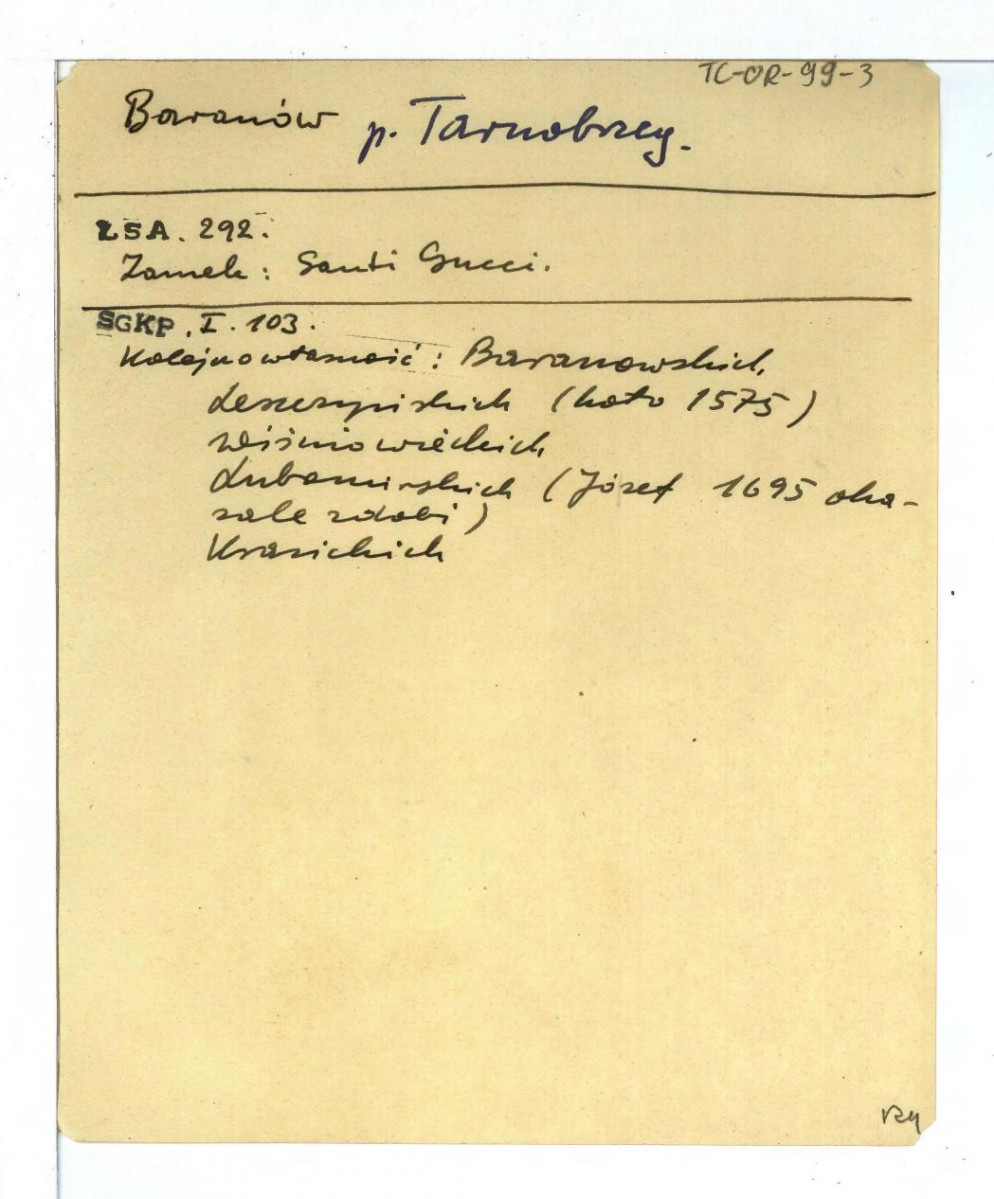 TC-OR-99-3
Baranów p. Tarnobrzeg.
ŁSA. 292.
Zamek: Santi Gucci.
SGKP. I. 103.
Kolejno własność: Baranowskich,
Leszczyńskich (koło 1575)
Wiśniowieckich
Lubomirskich (Józef 1695 oka-
zale zdobi)
Krasickich